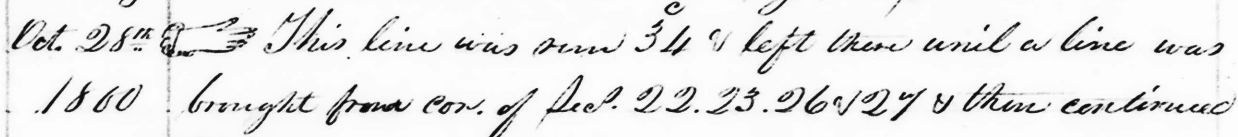 Oct. 28th ☞ This line was run 34 & left there unil a line was
1860 brought from cor. of Secs. 22.23.26 & 27 & then continued